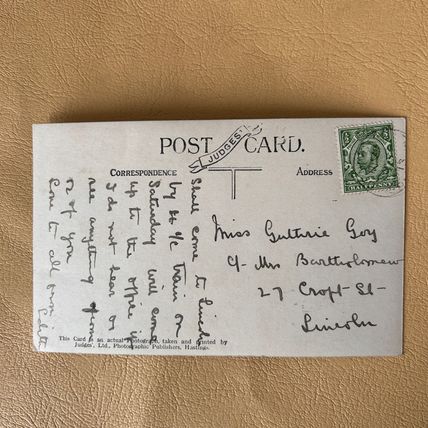 POST CARD.
JUDGES'
CORRESPONDENCE
ADDRESS
HALFPENNY
Shall come to Lincoln
by train on
Saturday will come
up to the office if
I do not hear or
see anything from
or of you
Love to all from
Miss Guthrie Goy
c/- Mrs Bartholomew
27 Croft St-
Lincoln
This Card is an actual Photograph, taken and printed by
Judges', Ltd., Photographic Publishers, Hastings.